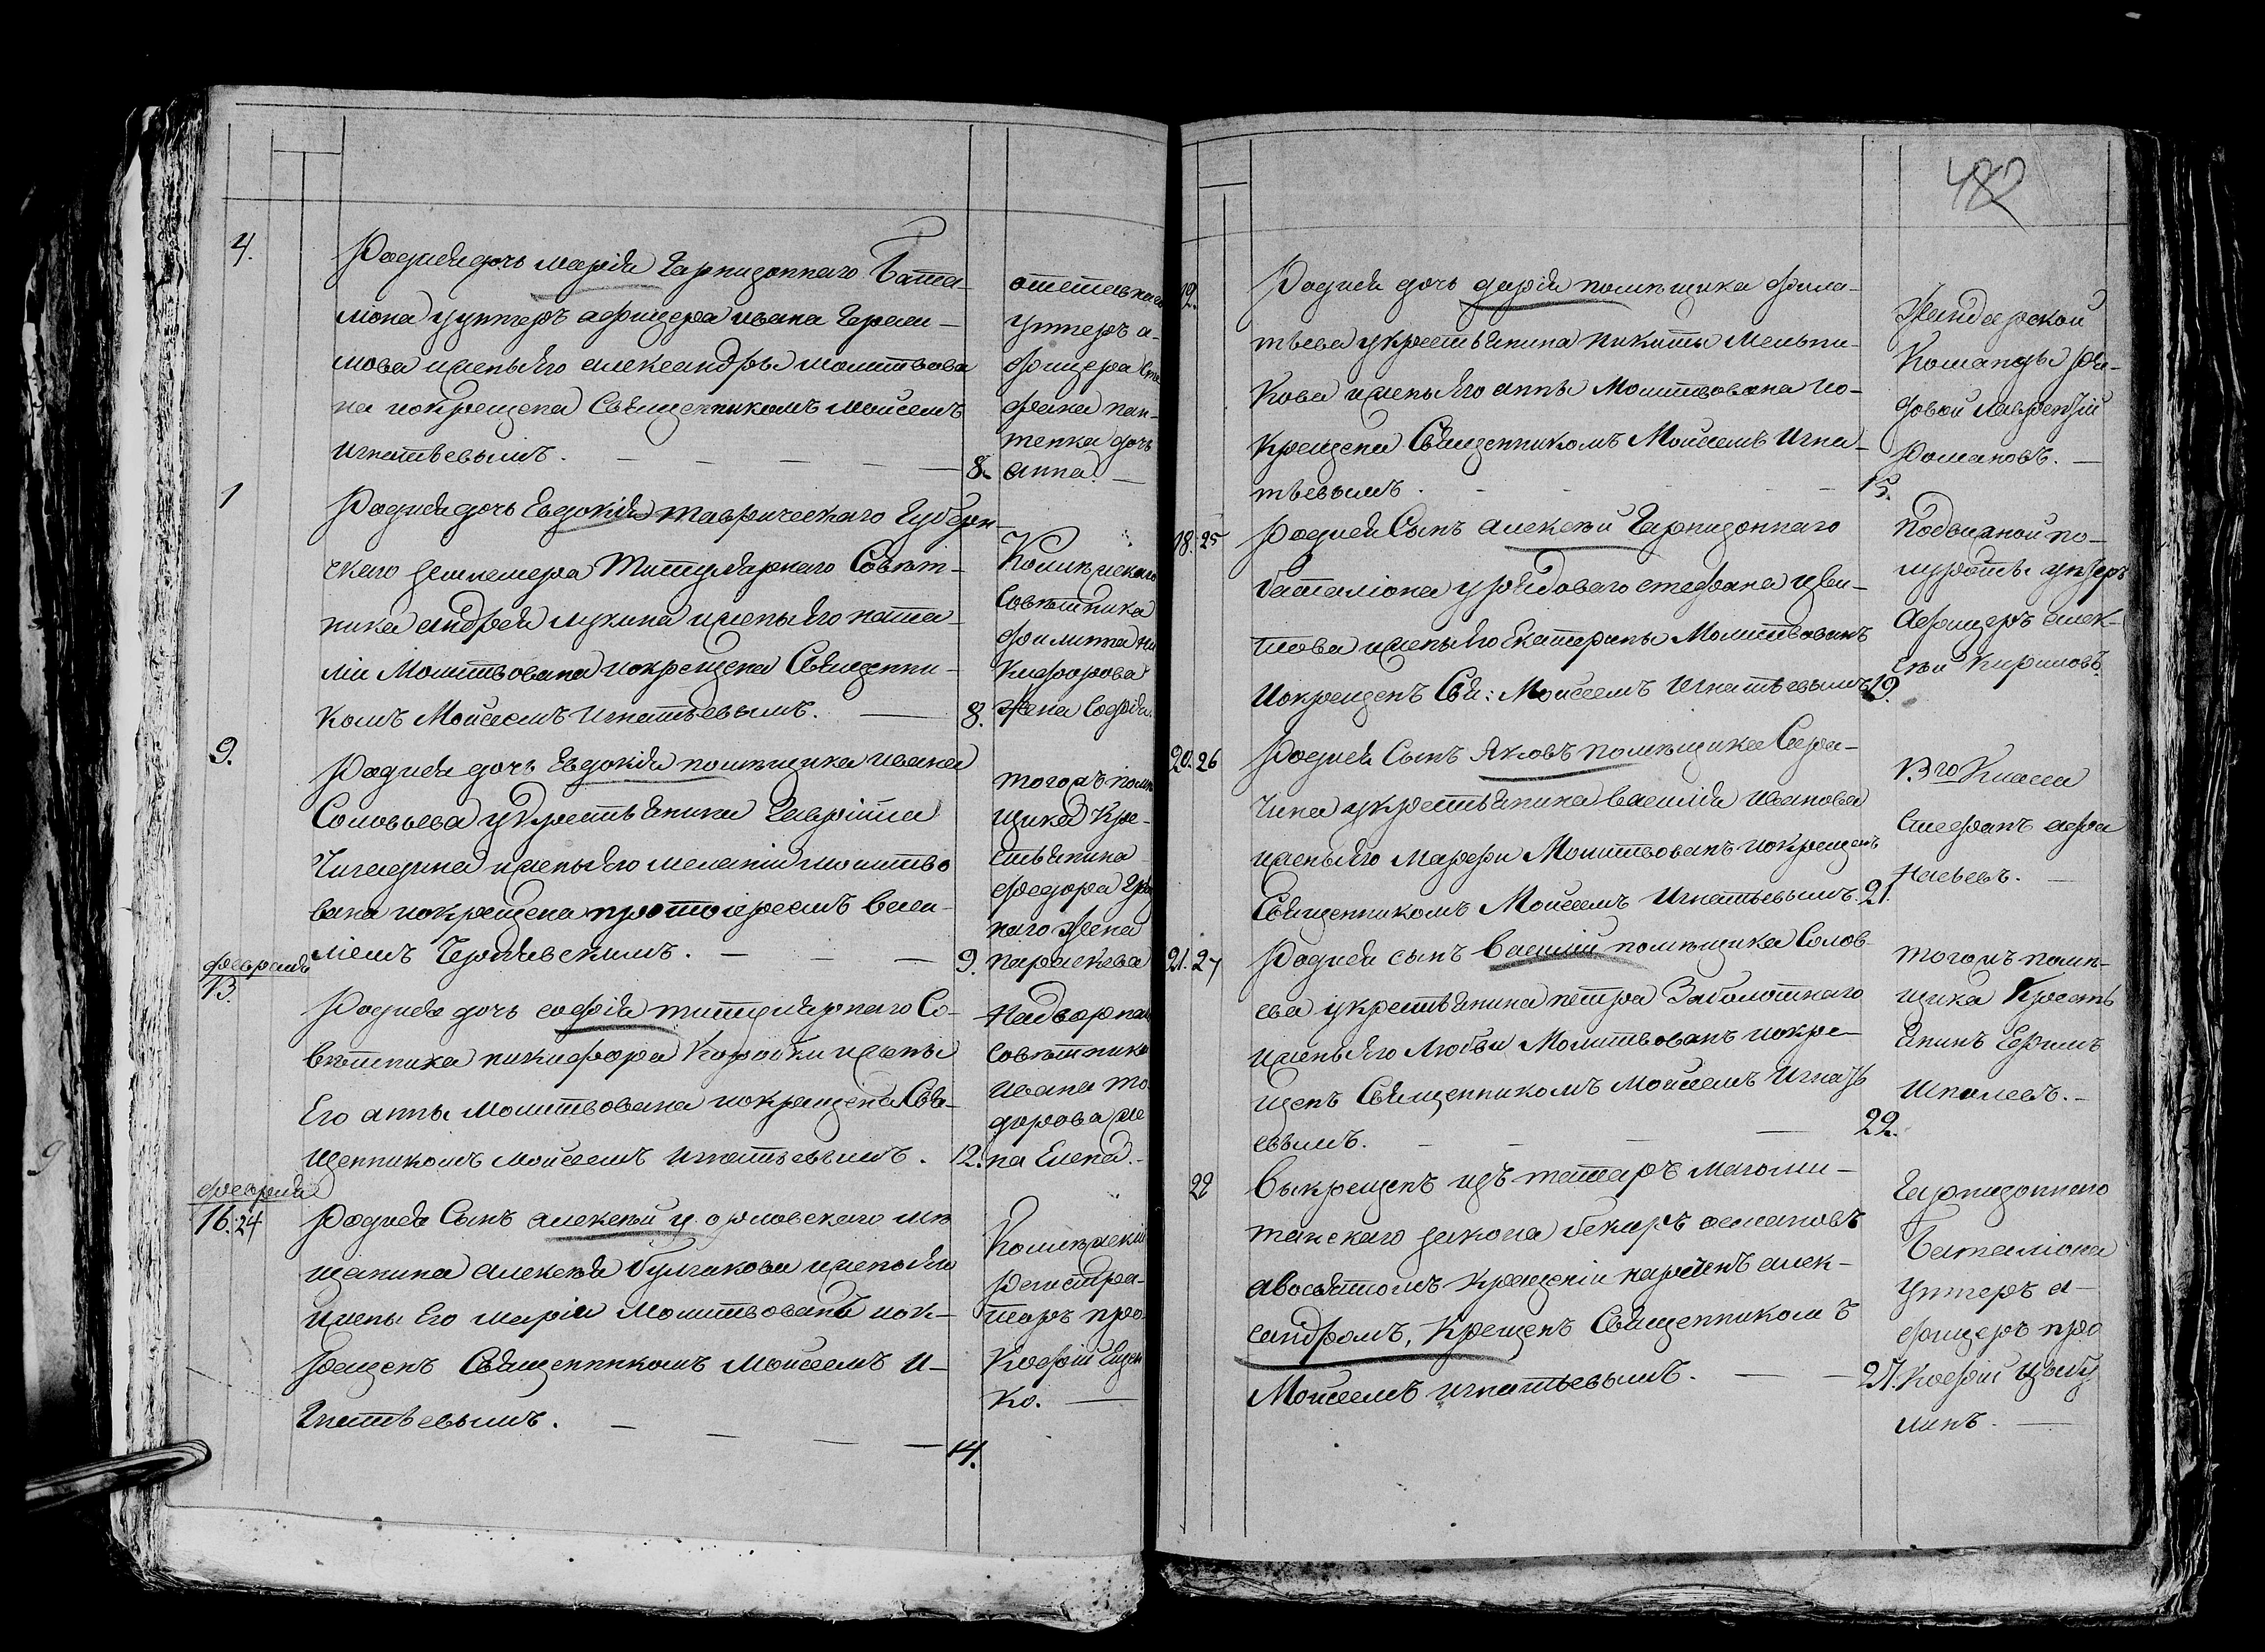 4.
Родися дочь Марія Гарнизоннаго Бата-
ліона у унтеръ афицера ивана Гераси-
мова ижены Его александры молитвова
на иокрещена Священникомъ Моисеемъ
Игнатьевымъ. 8.
отставнаго
унтеръ а-
фицера Сте
фана пан-
тенка дочь
анна.
1
Родися дочь Евдокія таврическаго Губерн-
скаго землемера Титулярнаго Совѣт-
ника андрея лукина ижены Его ната-
ліи Молитвована иокрещена Священни-
комъ Моисеемъ Игнатьевымъ. 8.
Колежскаго
Совѣтника
филипа ни
кифорова
жена Софія.
9.
Родися дочь Евдокія помѣщика ивана
Соловьева укрестьянина Гавріила
ижены Его меланіи молитво
вана иокрещена протоіереемъ васи-
ліемъ Чернявскимъ. 9.
тогожъ помѣ
щика Кре-
стьянина
федора
наго жена
параскева
февраля
13.
Родися дочь софія титулярнаго Со-
вѣтника никифора ижены
Его анны Молитвована иокрещена Свя-
щенникомъ Моисеемъ Игнатьевымъ. 12.
Надворнаго
совѣтника
ивана то
дорова же
на Елена.
февраля
16. 24
Родися Сынъ алексѣй у орловскаго мѣ
щанина алексѣя Булгакова ижены Его
ижены Его маріи Молитвованъ иок-
рещенъ Священникомъ Моисеемъ И-
гнатьевымъ. 14.
Колежскій
регистра-
торъ про
кофій
ко.
482
12.
Родися дочь дарія помѣщика фила-
тьева укрестьянина никиты Мельни-
кова ижены Его анны Молитвована ио-
крещена Священникомъ Моисеемъ Игна-
тьевымъ. 15.
Жандарской
Команды ря-
довой лаврентій
Романовъ.
18. 25
Родися Сынъ алексѣй Гарнизоннаго
баталіона урядоваго стефана
ижены Его Екатерины Молитвованъ
Иокрещенъ Свя: Моисеемъ Игнатьевымъ 19.
Подвижной по-
унтеръ
Афицеръ алек-
сѣй Кириловъ.
20. 26
Родися Сынъ Яковъ помѣщика Сара-
чина укрестьянина василія иванова
ижены Его Марфы Молитвованъ иокрещенъ
Священникомъ Моисеемъ Игнатьевымъ. 21.
13го Класса
Стефанъ афа
насьевъ.
21. 27
Родися сынъ василій помѣщика Солов-
ева укрестьянина петра Заболотнаго
ижены Его Любви Молитвованъ иокре-
щенъ Священникомъ Моисеемъ Игнать
евымъ. 22.
тогожъ помѣ-
щика Кресть
янинъ Ефимъ
22
Выкрещенъ изъ татаръ магоми-
танскаго закона бекиръ османовъ
авосвятомъ крещеніи нареченъ алек-
сандромъ, Крещенъ Священникомъ
Моисеемъ игнатьевымъ. 27.
Гарнизоннаго
Баталіона
Унтеръ а-
фицеръ про
кофій
линъ.